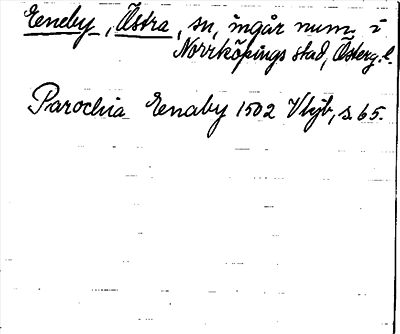 Eneby, Östra, sn, ingår num. i
Norrköpings stad, Österg. l.
Parochia Enaby 1502 Vbjb, s. 65.